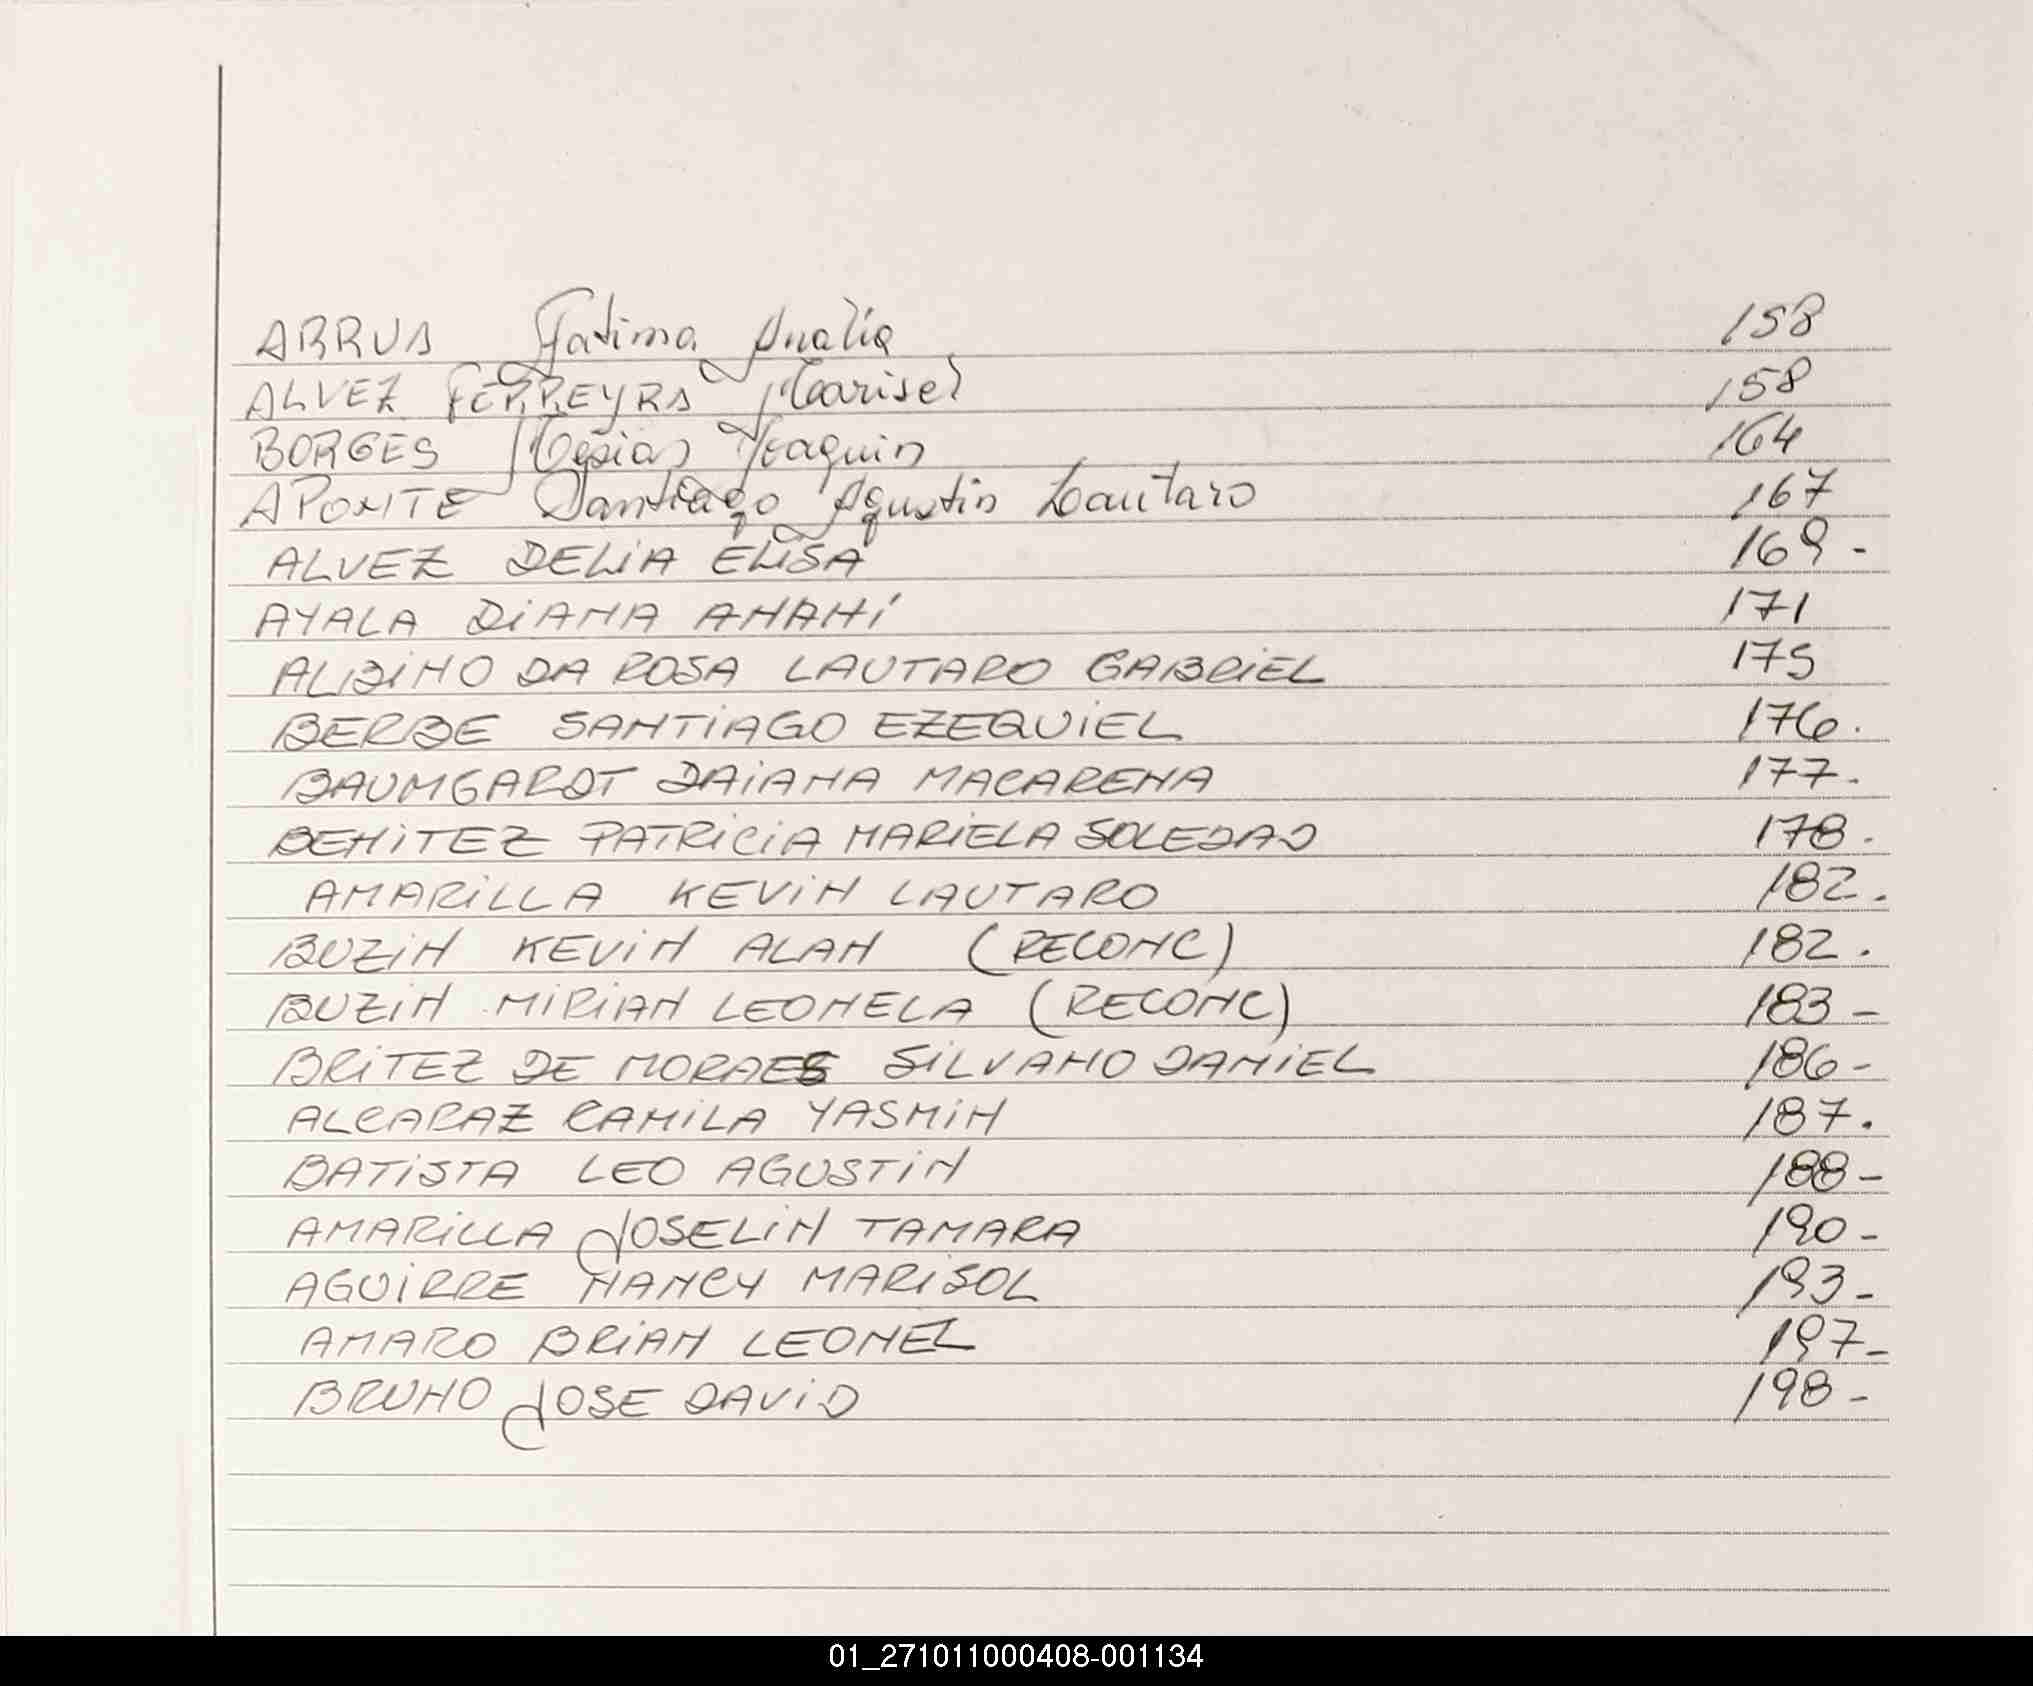 ARRUA Fatima Analia 158
ALVEZ FERREYRA Marisel 158
BORGES Mesias Joaquin 164
APONTE Santiago Agustin Lautaro 167
ALVEZ DELIA ELISA 169-
AYALA DIANA ANAHÍ 171
ALBINO DA ROSA LAUTARO GABRIEL 175
BERBE SANTIAGO EZEQUIEL 176.
BAUMGARDT DAIANA MACARENA 177-
BENITEZ PATRICIA MARIELA SOLEDAD 178.
AMARILLA KEVIN LAUTARO 182.
BUZIN KEVIN ALAN (RECONC) 182.
BUZIN MIRIAN LEONELA (RECONC) 183-
BRITEZ DE MORAES SILVANO DANIEL 186-
ALCARAZ CAMILA YASMIN 187.
BATISTA LEO AGUSTIN 188-
AMARILLA JOSELIN TAMARA 190-
AGUIRRE NANCY MARISOL 193-
AMARO BRIAN LEONEL 197-
BRUNO JOSE DAVID 198-
01_271011000408-001134